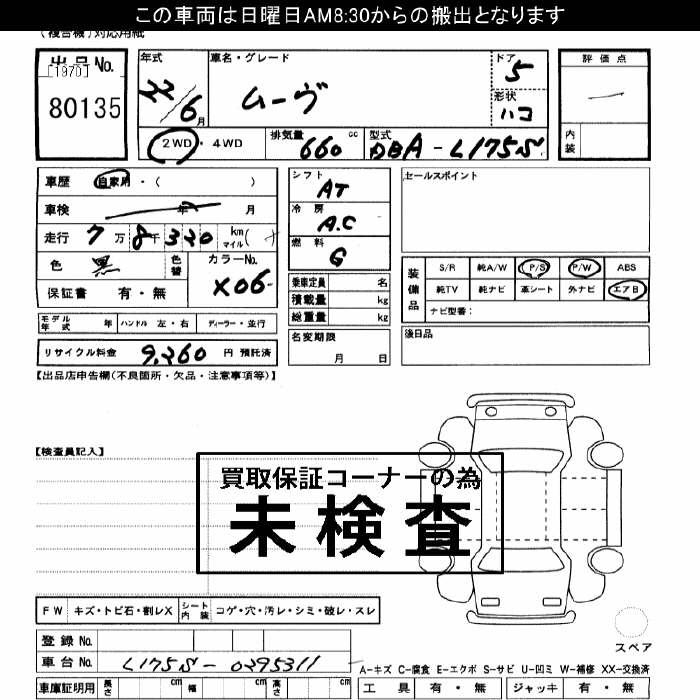 この車両は日曜日AM8:30からの搬出となります
(複合機)対応用紙
出品No.
[1970]
80135
年式
22/6月
車名・グレード
ムーヴ
ドア
5
形状
ハコ
評価点
内装
2WD・4WD
排気量
660 cc
型式
DBA-L175S
車歴 自家用・( )
車検 年 月
走行 7万8千320 km マイル(
色 黒
色替
カラーNo.
X06
保証書 有・無
シフト
AT
冷房
A.C
燃料
G
乗車定員 名
積載量 kg
総重量 kg
セールスポイント
装備品
S/R 純A/W P/S P/W ABS
純TV 純ナビ 革シート 外ナビ エアB
ナビ型番:
モデル年式 年 ハンドル 左・右 ディーラー・並行
リサイクル料金 9,260 円 預託済
名変期限
月 日
後日品
【出品店申告欄(不良箇所・欠品・注意事項等)】
【検査員記入】
買取保証コーナーの為
未検査
FW キズ・トビ石・割レX シート内装 コゲ・穴・汚レ・シミ・破レ・スレ
スペア
登録No.
車台No. L175S-0295311
A-キズ C-腐食 E-エクボ S-サビ U-凹ミ W-補修 XX-交換済
車庫証明用 長さ cm 幅 cm 高さ cm
工具 有・無 ジャッキ 有・無